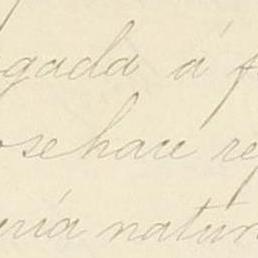 gada á f
osehace rep
ría natur